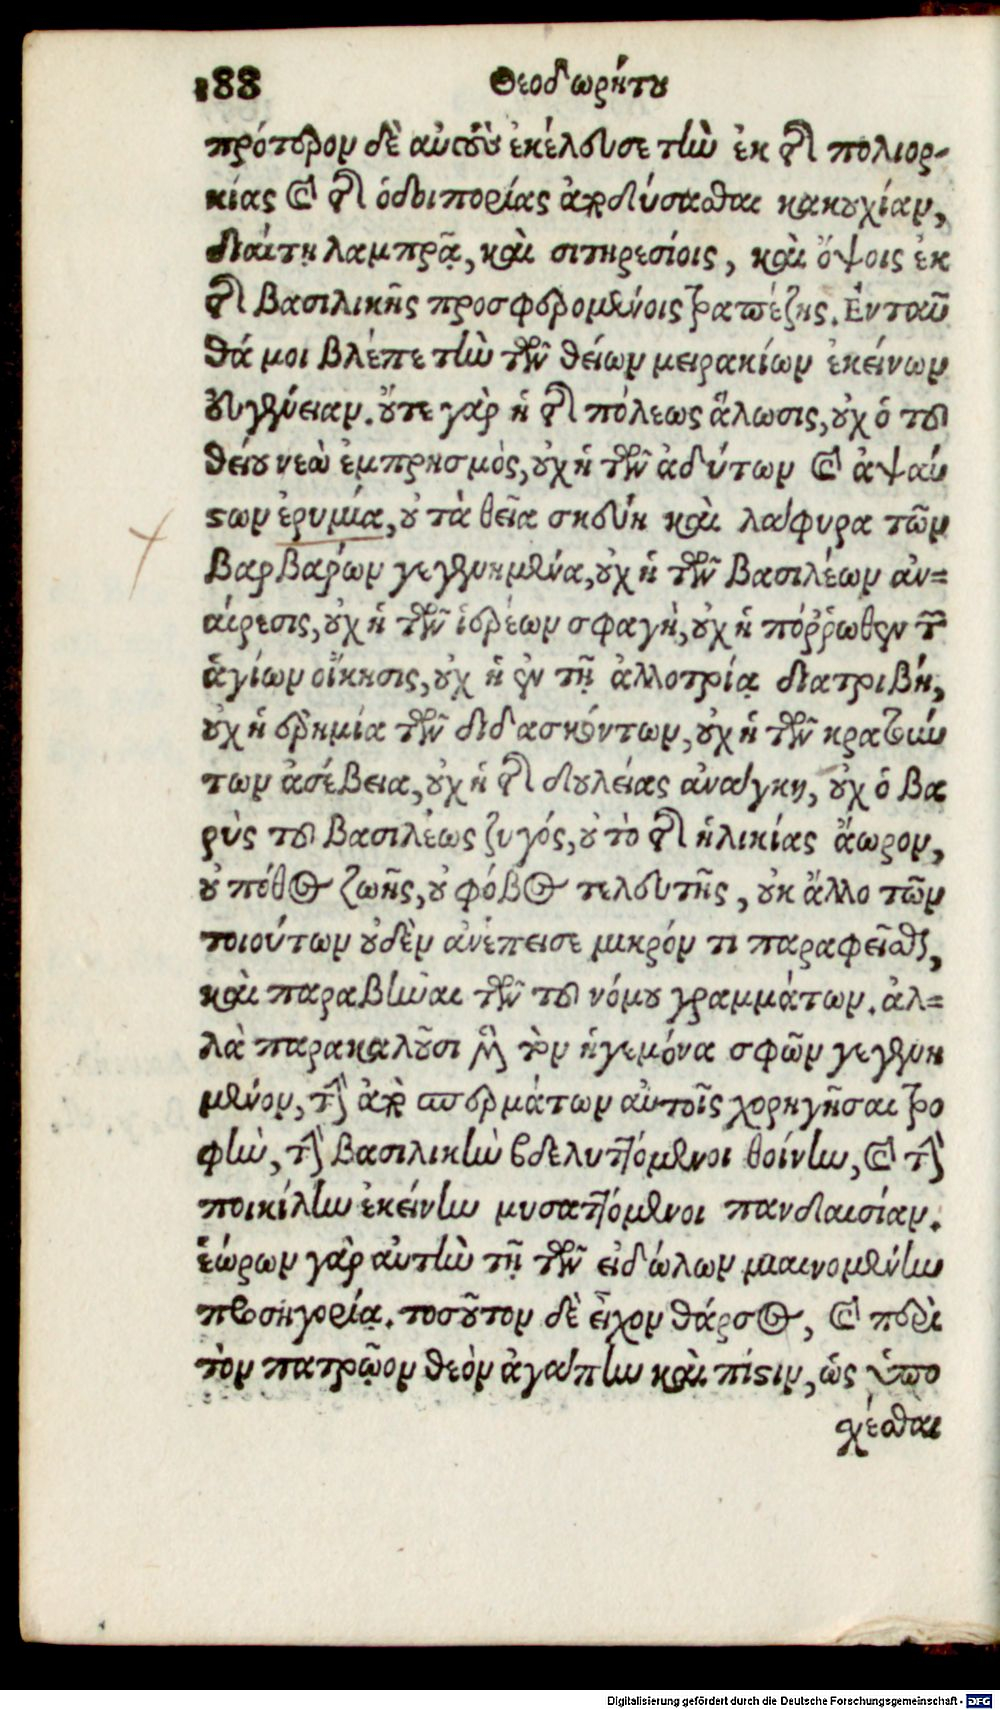 188 Θεοδωρήτου
πρότερον δὲ αὐτοὺς ἐκέλευσε τὴν ἐκ τῆς πολιορ-
κίας καὶ τῆς ὁδοιπορίας ἀποδύσασθαι κακουχίαν,
διαίτῃ λαμπρᾷ, καὶ σιτηρεσίοις, καὶ ὄψοις ἐκ
τῆς βασιλικῆς προσφερομένοις τραπέζης. Ἐνταῦ
θά μοι βλέπε τὴν τῶν θείων μειρακίων ἐκείνων
εὐγένειαν. οὔτε γὰρ ἡ τῆς πόλεως ἅλωσις, οὐχ ὁ τοῦ
θείου νεὼ ἐμπρησμὸς, οὐχ ἡ τῶν ἀδύτων καὶ ἀψαύ
στων ἐρυμία, οὐ τὰ θεῖα σκεύη καὶ λάφυρα τῶν
βαρβαρών γεγενημένα, οὐχ ἡ τῶν βασιλέων ἀν=
αίρεσις, οὐχ ἡ τῶν ἱερέων σφαγὴ, οὐχ ἡ πόῤῥωθεν τῶν
ἁγίων οἴκησις, οὐχ ἡ ἐν τῇ ἀλλοτρίᾳ διατριβή,
οὐχ ἡ ἐρημία τῶν διδασκόντων, οὐχ ἡ τῶν κρατούν
των ἀσέβεια, οὐχ ἡ τῆς δουλείας ἀνάγκη, οὐχ ὁ βα
ρὺς τοῦ βασιλέως ζυγός, οὐ τὸ τῆς ἡλικίας ἄωρον,
οὐ πόθος ζωῆς, οὐ φόβος τελευτῆς, οὐκ ἄλλο τῶν
τοιούτων οὐδὲν ἀνέπεισε μικρόν τι παραφεῖσθαι,
καὶ παραβῆναι τῶν τοῦ νόμου γραμμάτων. ἀλ=
λὰ παρακαλοῦσι μὲν τὸν ἡγεμόνα σφῶν γεγενη
μένον, τὴν ἀπὸ σπερμάτων αὐτοῖς χορηγῆσαι τρο
φὴν, τὴν βασιλικὴν βδελυττόμενοι θοίνην, καὶ τὴν
ποικίλην ἐκείνην μυσαττόμενοι πανδαισίαν.
ἑώρων γὰρ αὐτὴν τῇ τῶν εἰδώλων μιαινομένην
προσηγορίᾳ. τοσοῦτον δὲ εἶχον θάρσος, καὶ περὶ
τὸν πατρῷον θεὸν ἀγάπην καὶ πίστιν, ὡς ὑπο
χέσθαι
Digitalisierung gefördert durch die Deutsche Forschungsgemeinschaft - DFG